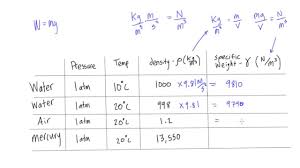 W = mg
Kg/m³ m/s² = N/m³
Kg/m³ = m/V mg/V = N/m³
Pressure Temp density - ρ (Kg/m³) specific weight - γ (N/m³)
Water 1 atm 10°C 1000 × 9.81 m/s² = 9810
Water 1 atm 20°C 998 × 9.81 = 9790
Air 1 atm 20°C 1.2 =
Mercury 1 atm 20°C 13,550